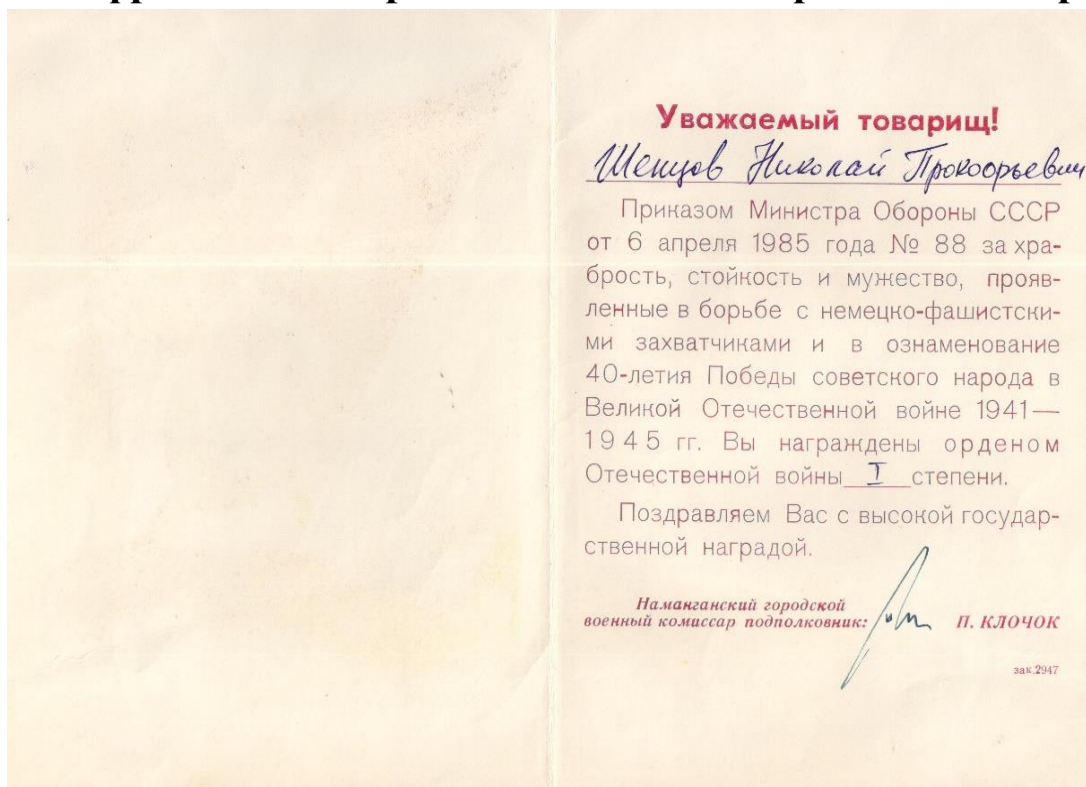 Уважаемый товарищ!
Шенцов Николай Прокофьевич
Приказом Министра Обороны СССР
от 6 апреля 1985 года № 88 за хра-
брость, стойкость и мужество, прояв-
ленные в борьбе с немецко-фашистски-
ми захватчиками и в ознаменование
40-летия Победы советского народа в
Великой Отечественной войне 1941—
1945 гг. Вы награждены орденом
Отечественной войны I степени.
Поздравляем Вас с высокой государ-
ственной наградой.
Наманганский городской
военный комиссар подполковник: П. КЛОЧОК
зак.2947